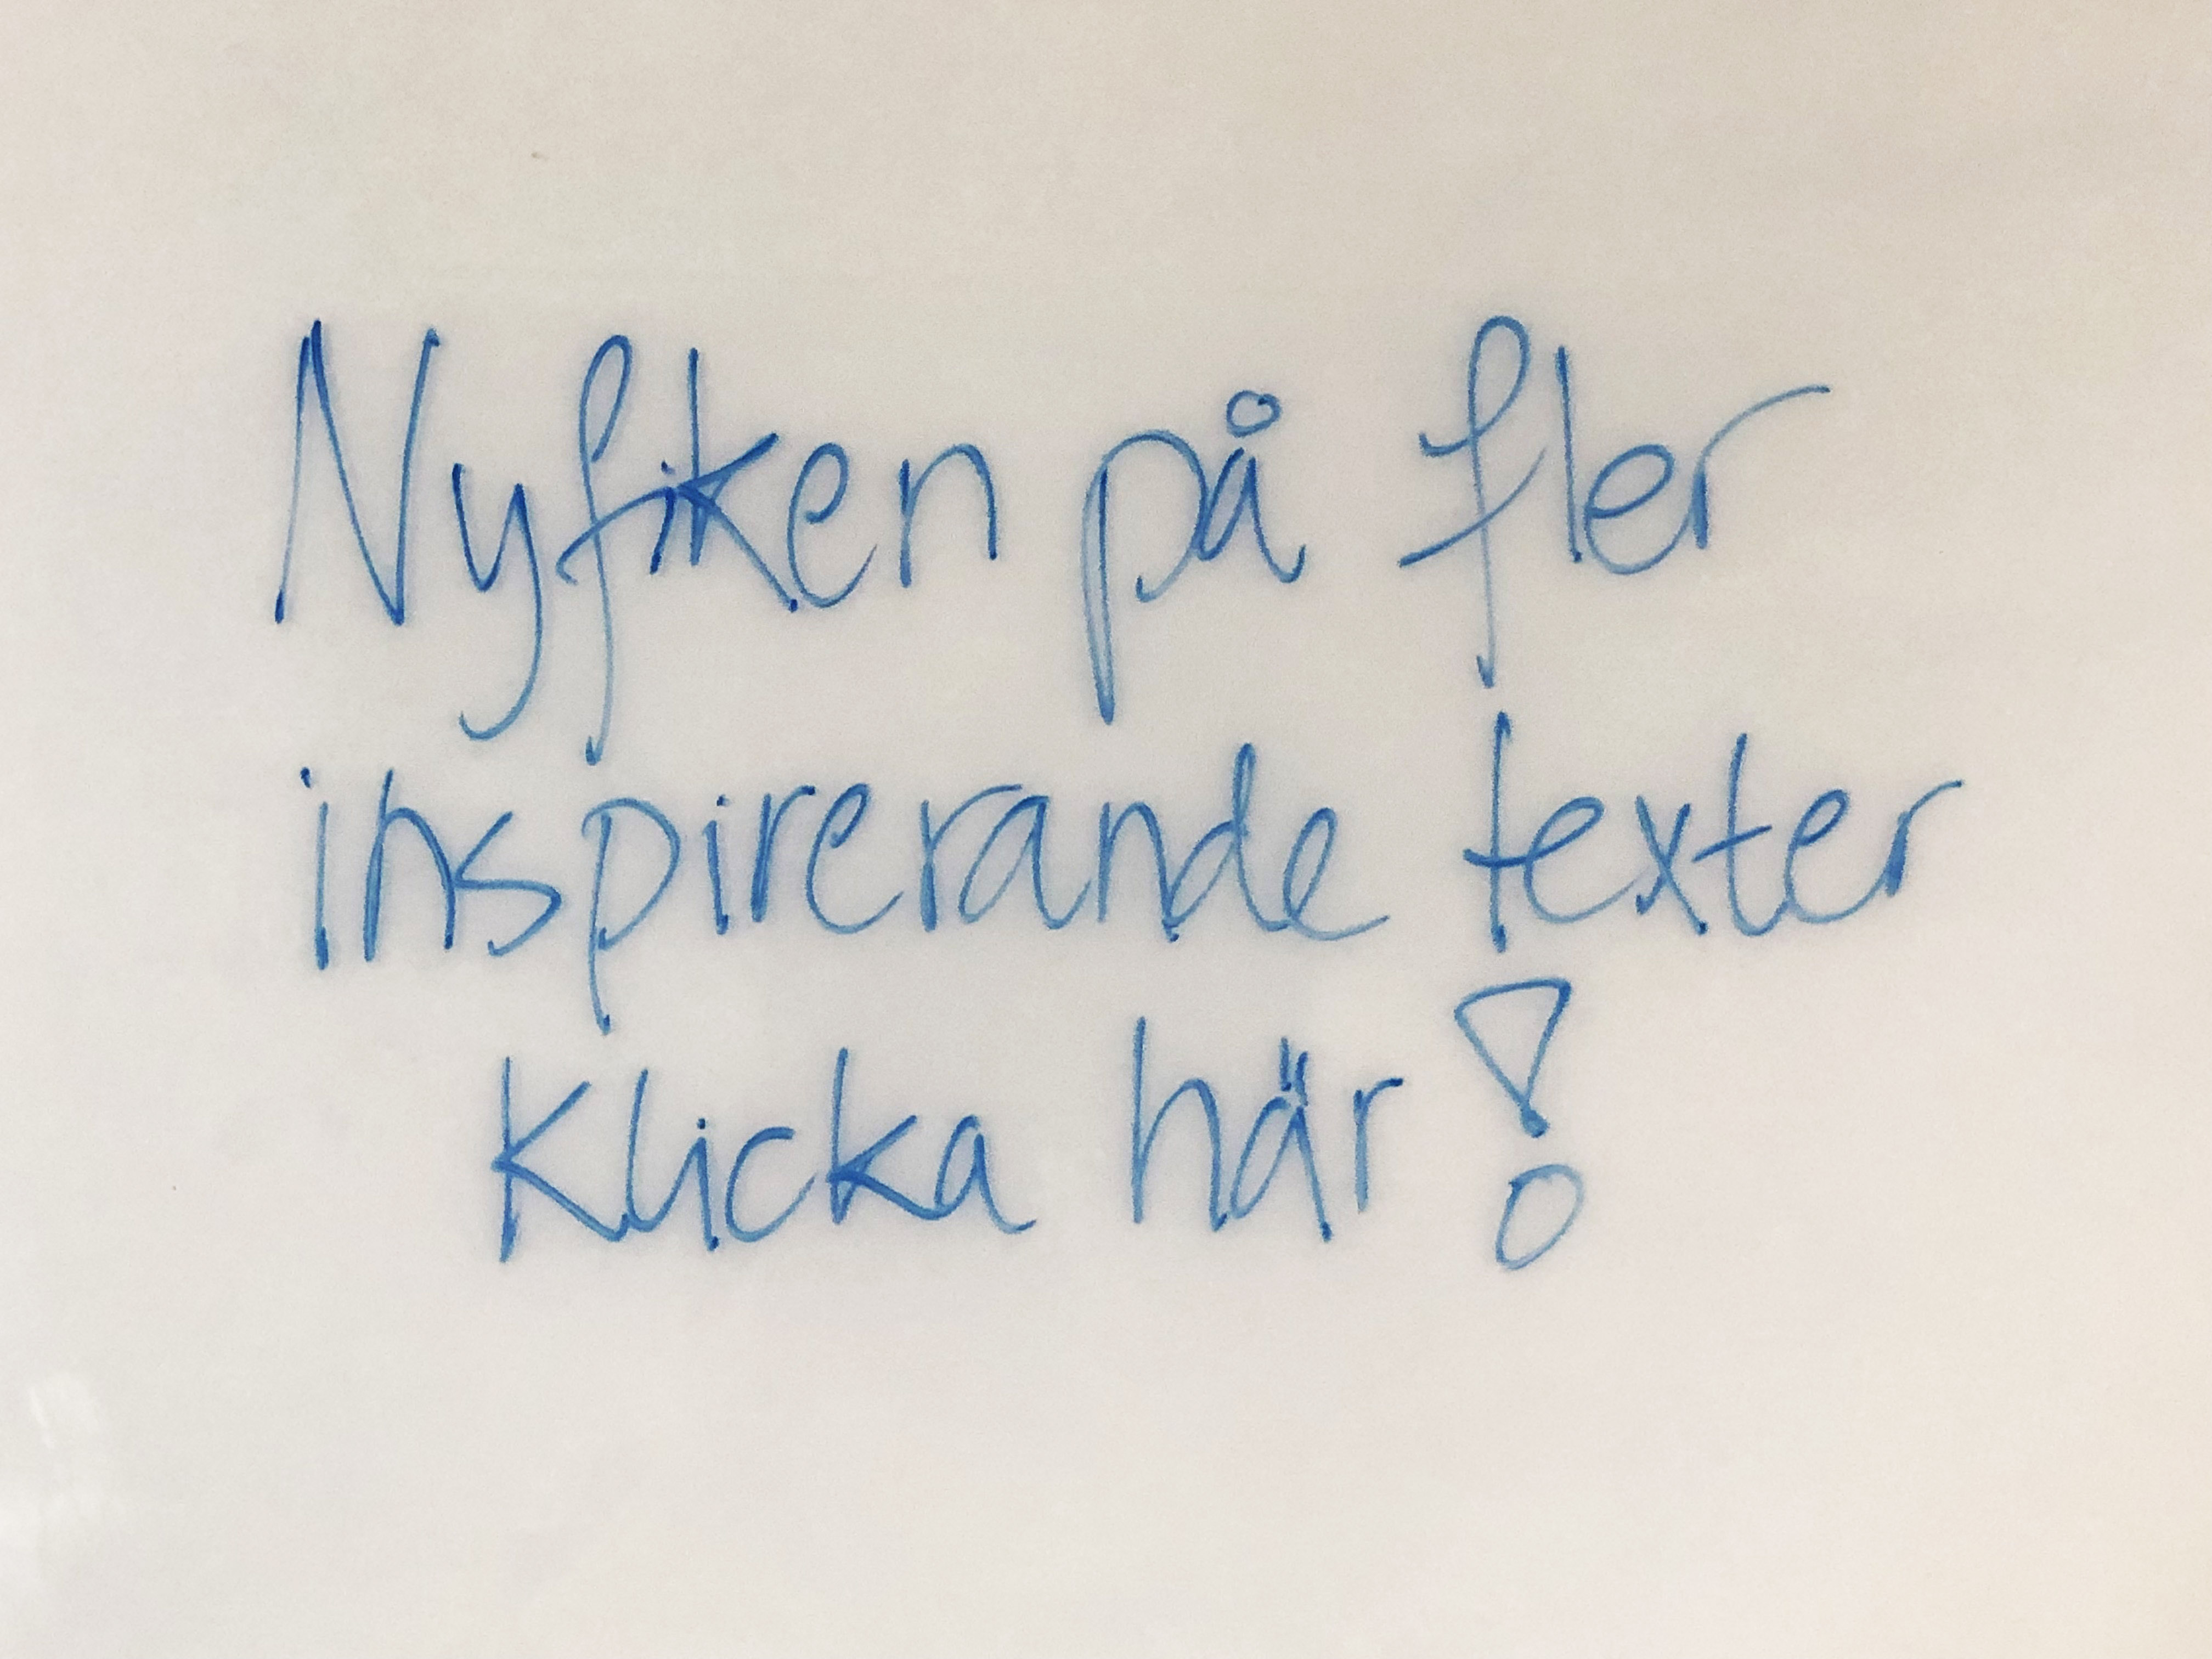 Nyfiken på fler
inspirerande texter
Klicka här!